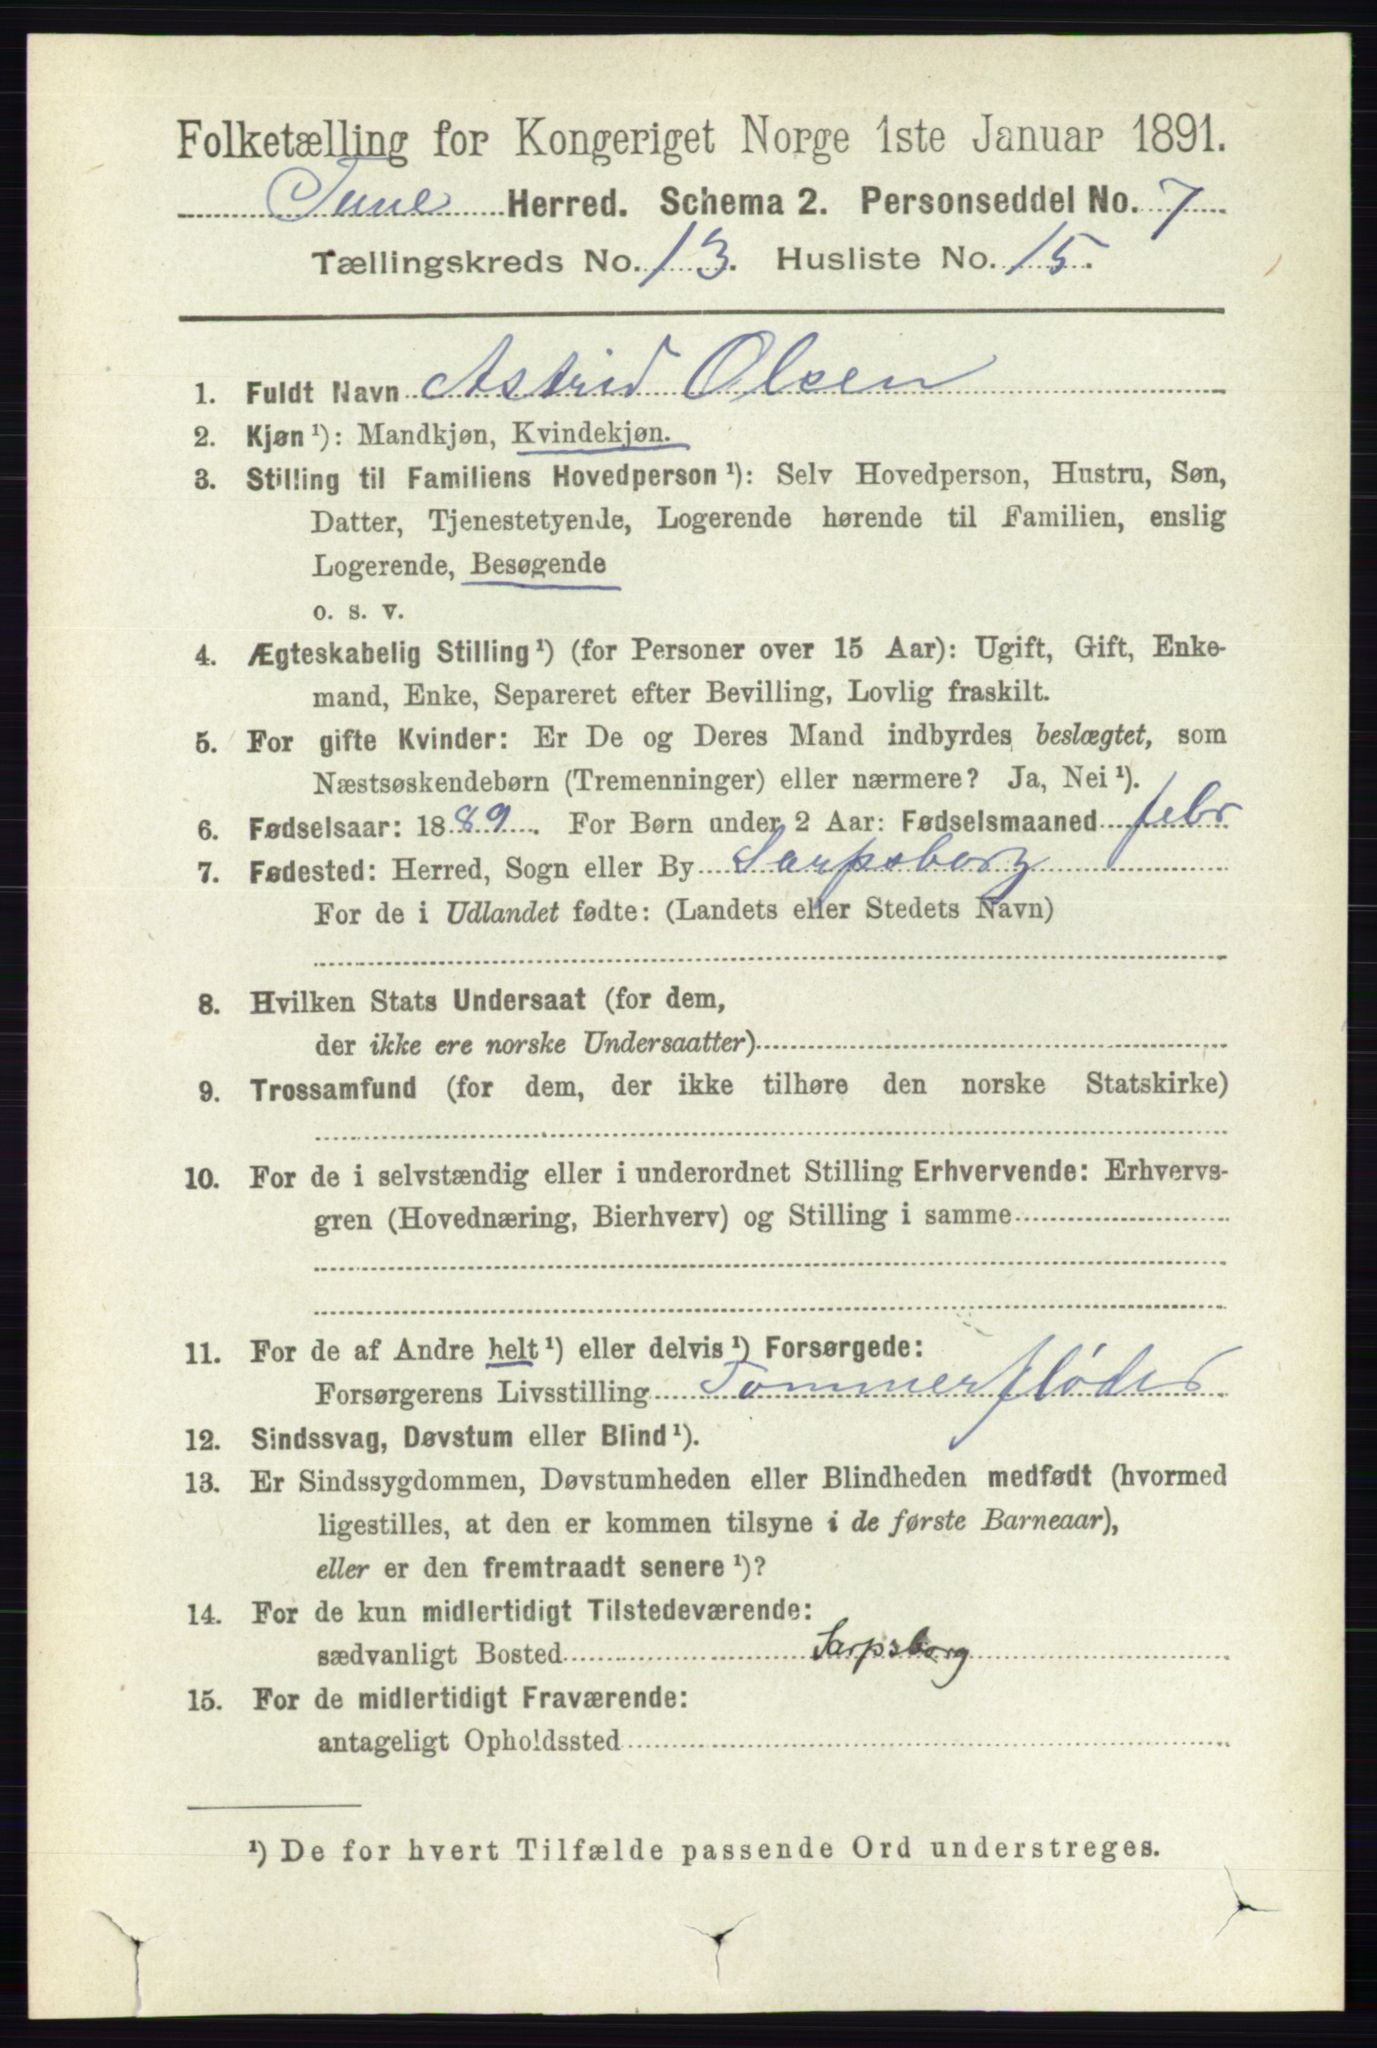 Folketælling for Kongeriget Norge 1ste Januar 1891.
Tune Herred. Schema 2. Personseddel No. 7
Tællingskreds No. 13. Husliste No. 15.
1. Fuldt Navn Astrid Olsen
2. Kjøn ¹): Mandkjøn, Kvindekjøn.
3. Stilling til Familiens Hovedperson ¹): Selv Hovedperson, Hustru, Søn,
Datter, Tjenestetyende, Logerende hørende til Familien, enslig
Logerende, Besøgende
o. s. v.
4. Ægteskabelig Stilling ¹) (for Personer over 15 Aar): Ugift, Gift, Enke-
mand, Enke, Separeret efter Bevilling, Lovlig fraskilt.
5. For gifte Kvinder: Er De og Deres Mand indbyrdes beslægtet, som
Næstsøskendebørn (Tremenninger) eller nærmere? Ja, Nei ¹).
6. Fødselsaar: 1889. For Børn under 2 Aar: Fødselsmaaned febr
7. Fødested: Herred, Sogn eller By Sarpsborg
For de i Udlandet fødte: (Landets eller Stedets Navn)
8. Hvilken Stats Undersaat (for dem,
der ikke ere norske Undersaatter)
9. Trossamfund (for dem, der ikke tilhøre den norske Statskirke)
10. For de i selvstændig eller i underordnet Stilling Erhvervende: Erhvervs-
gren (Hovednæring, Bierhverv) og Stilling i samme
11. For de af Andre helt ¹) eller delvis ¹) Forsørgede:
Forsørgerens Livsstilling Tømmerfløder
12. Sindssvag, Døvstum eller Blind ¹).
13. Er Sindssygdommen, Døvstumheden eller Blindheden medfødt (hvormed
ligestilles, at den er kommen tilsyne i de første Barneaar),
eller er den fremtraadt senere ¹)?
14. For de kun midlertidigt Tilstedeværende:
sædvanligt Bosted Sarpsborg
15. For de midlertidigt Fraværende:
antageligt Opholdssted
¹) De for hvert Tilfælde passende Ord understreges.